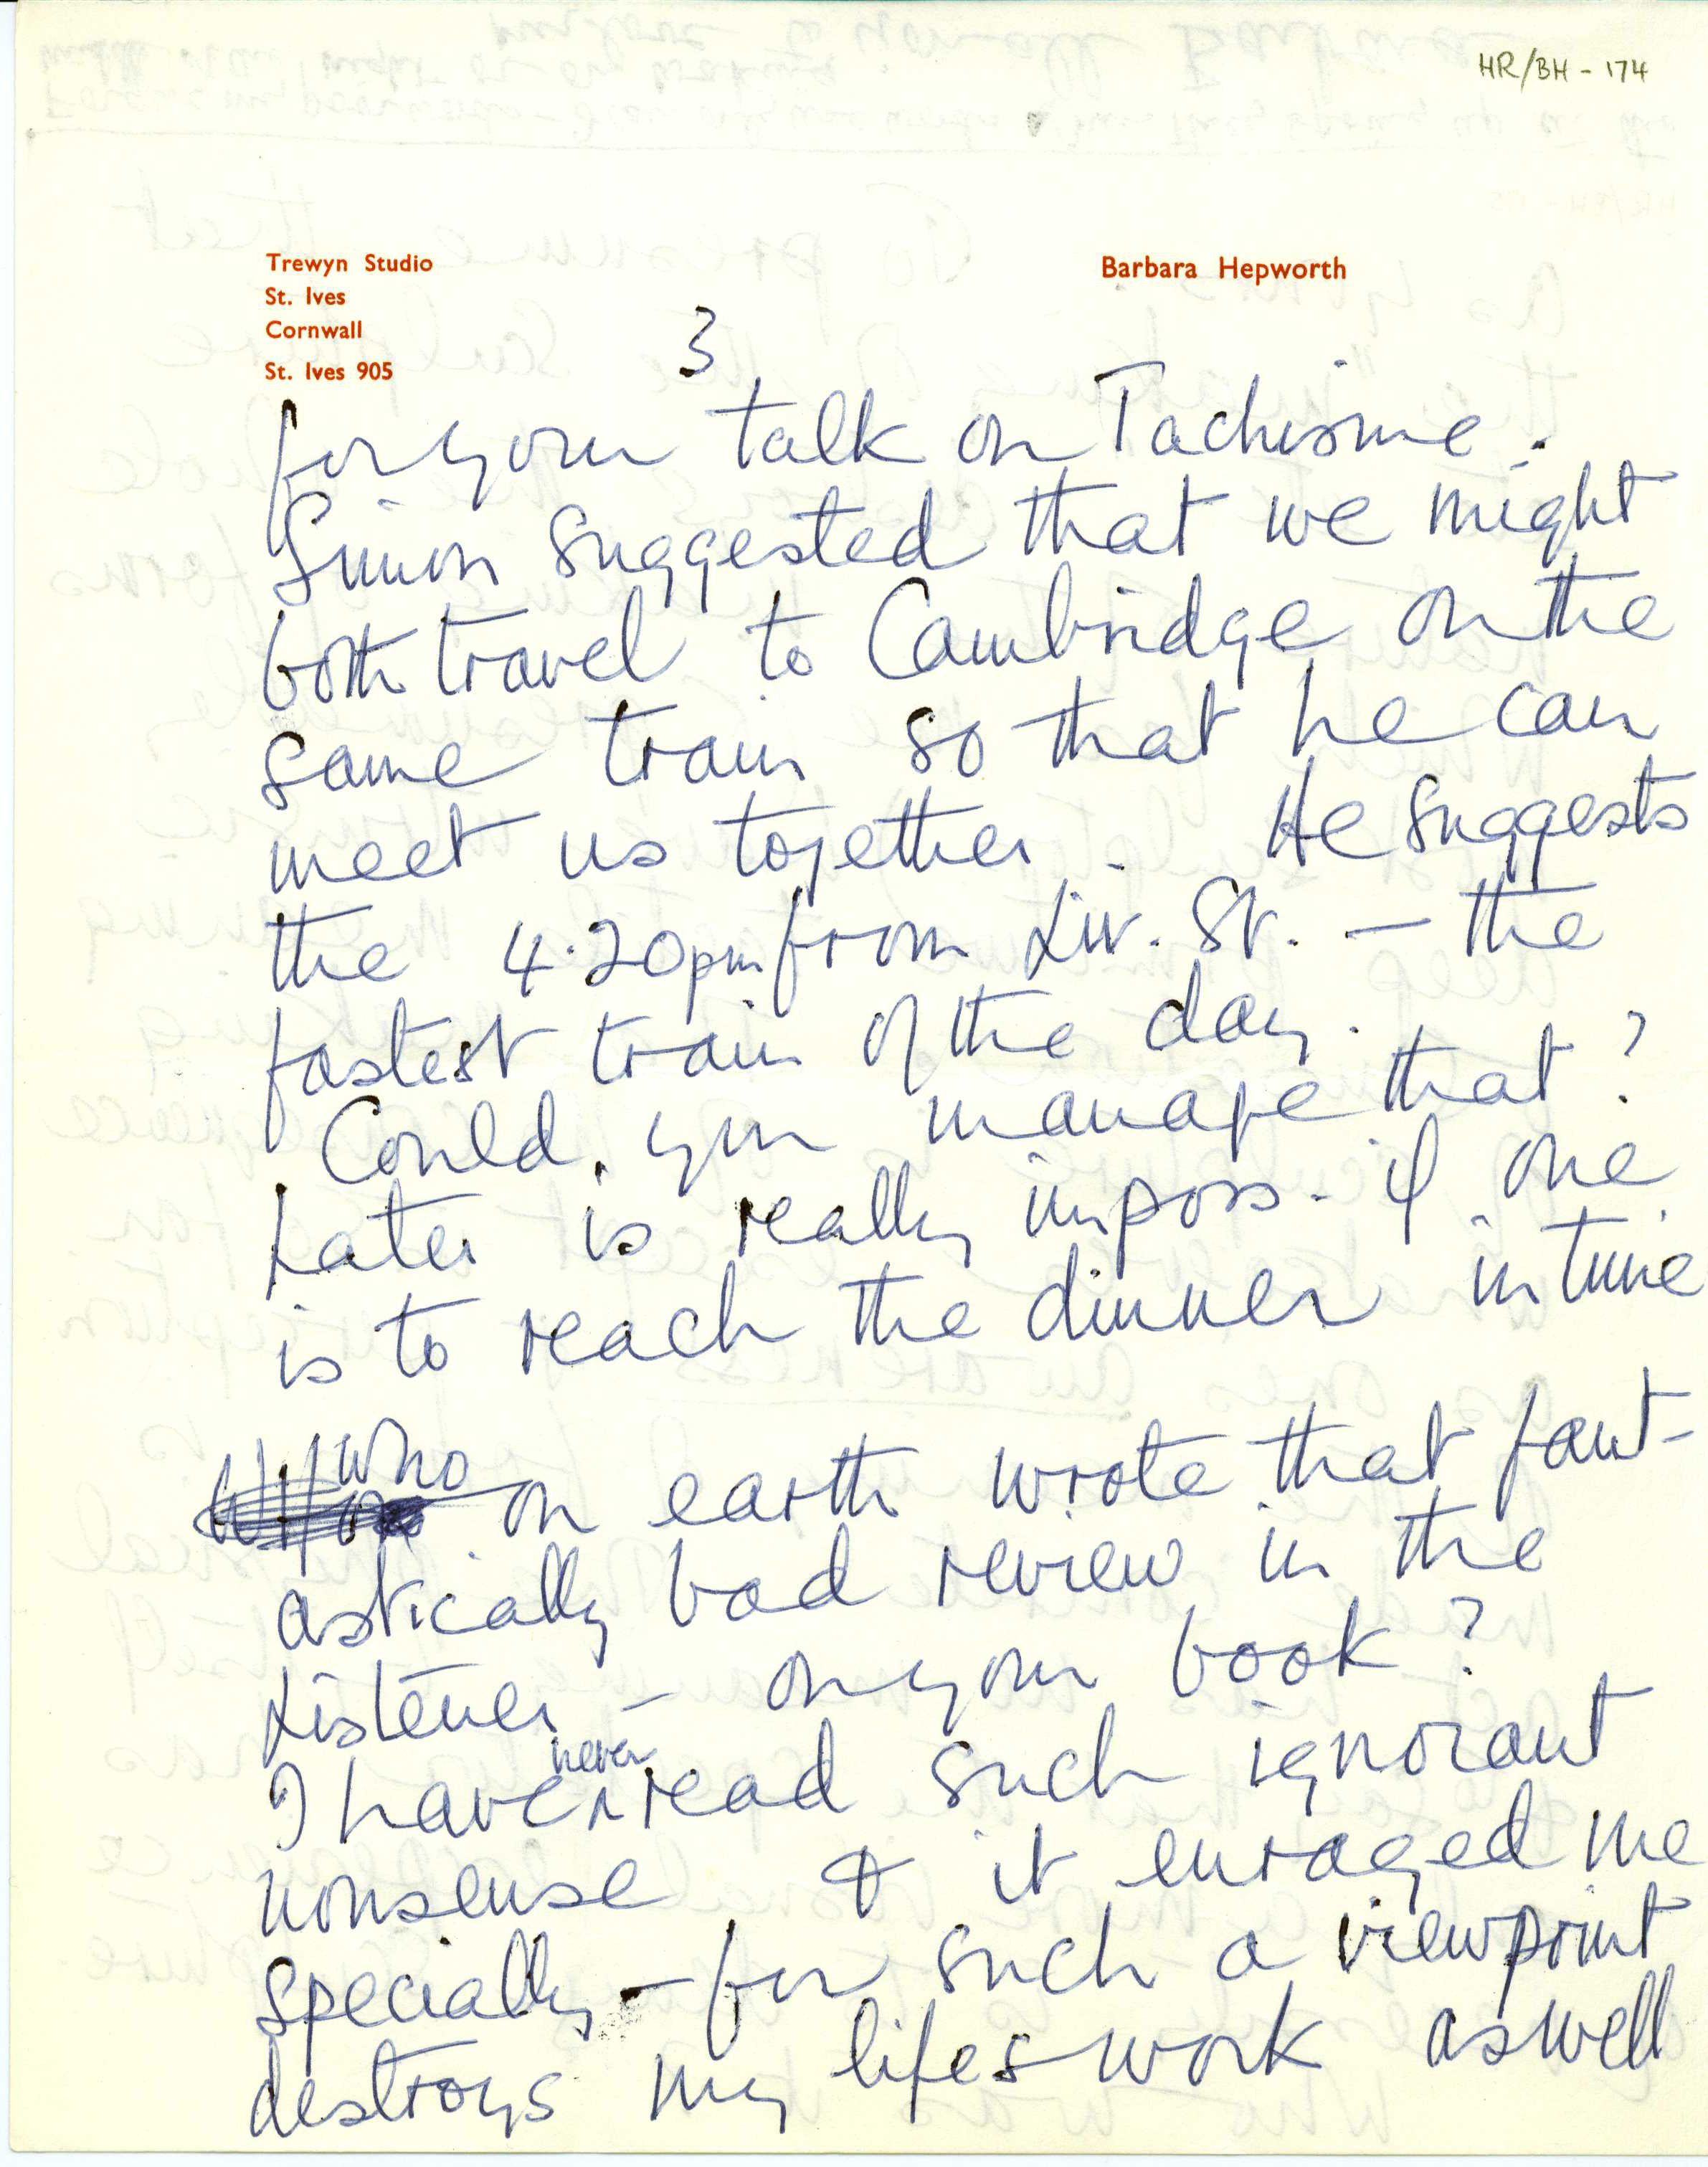 HR/BH - 174
Trewyn Studio
St. Ives
Cornwall
St. Ives 905
Barbara Hepworth
3
for your talk on Tachisme.
Simon suggested that we might
both travel to Cambridge on the
same train so that he can
meet us together. He suggests
the 4.20pm from Liv. St. — the
fastest train of the day.
Could you manage that?
Later is really imposs. if one
is to reach the dinner in time
who
on earth wrote that fant-
astically bad review in the
Listener — on your book?
never
I have read such ignorant
nonsense & it enraged me
specially — for such a viewpoint
destroys my lifes work as well